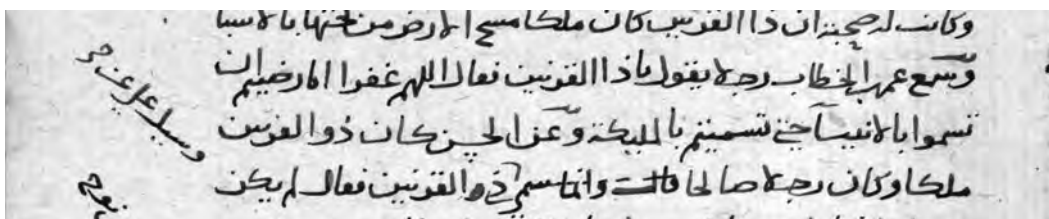 وكانت له صحبة ان ذا القرنين كان ملكا مسح الارض من تحتها بالاسبا
وسمع عمر بن الخطاب رجلا يقول ياذا القرنين فقال اللهم غفرا اما رضيتم ان
تسموا بالانبيا حتى تسميتم بالمليكة وعن الحسن كان ذو القرنين
ملكا وكان رجلا صالحا قال وانما سمي ذو القرنين فقال لم يكن
وسيل علي عن